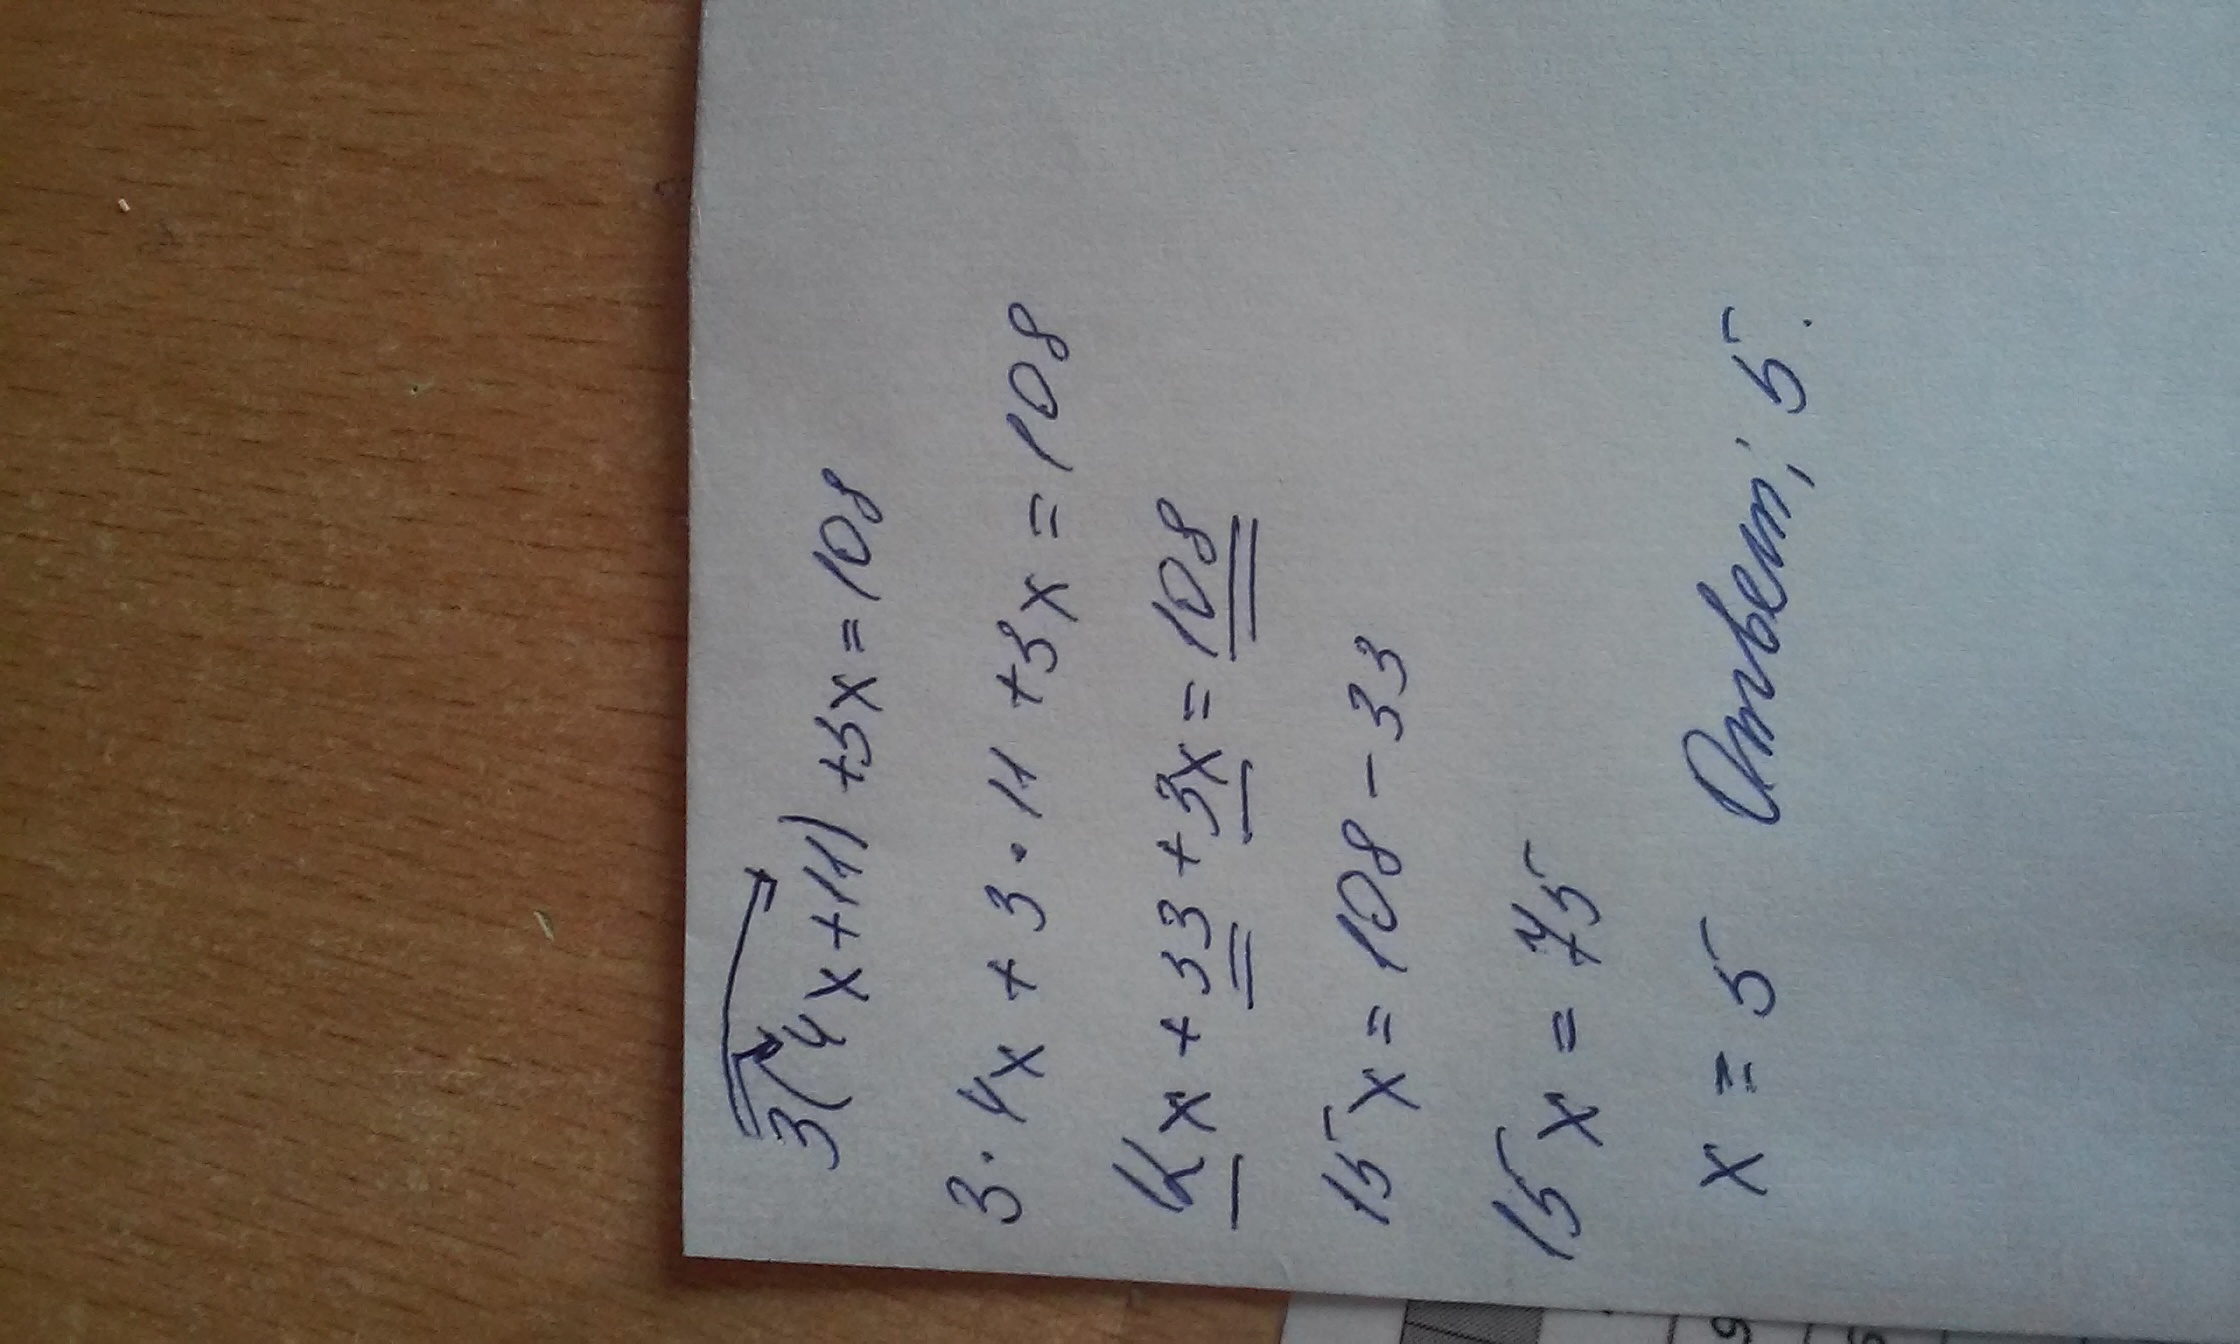 3(4x+11)+3x=108
3·4x+3·11+3x=108
12x+33+3x=108
15x=108-33
15x=75
x=5 Ответ: 5.